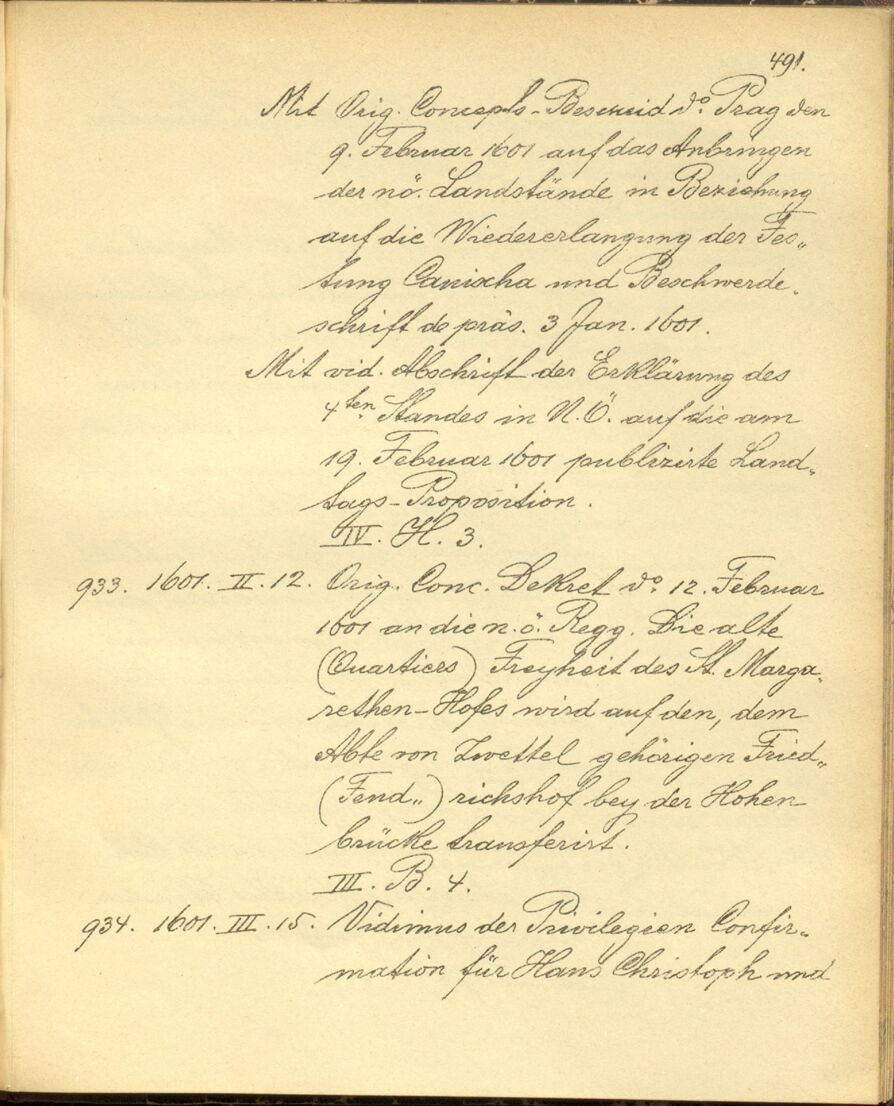 491.
Mit Orig. Concepts-Bescheid do. Prag den
9. Februar 1601 auf das Anbringen
der nö. Landstände in Beziehung
auf die Wiedererlangung der Fes„
tung Canischa und Beschwerde„
schrift de präs. 3 Jan. 1601.
Mit vid. Abschrift der Erklärung des
4ten Standes in N.Ö. auf die am
19. Februar 1601 publizirte Land„
tags-Proposition.
IV. H. 3.
933. 1601. II. 12. Orig. Conc. Dekret do. 12. Februar
1601 an die n.ö. Regg. Die alte
(Quartiers) Freyheit des St. Marga„
rethen-Hofes wird auf den, dem
Abte von Zwettel gehörigen Fried„
(Fend„) richshof bey der Hohen
brücke transferirt.
III. B. 4.
934. 1601. III. 15. Vidimus der Privilegien Confir„
mation für Hans Christoph und